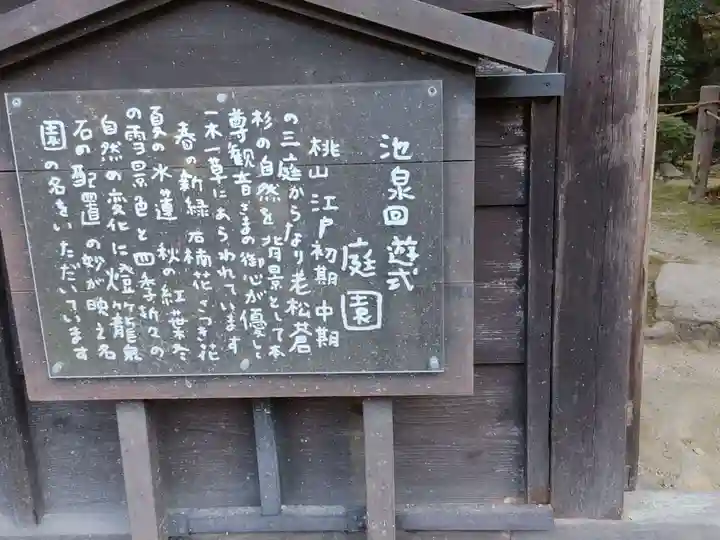 池泉回遊式
庭園
桃山 江戸初期 中期
の三庭からなり老松蒼
杉の自然を背景として本
尊観音さまの御心が優しく
一木一草にあらわれています
春の新緑 石楠花 さつき花
夏の水蓮 秋の紅葉 冬
の雪景色と四季折々の
自然の変化に燈籠 泉
石の配置の妙が映え名
園の名をいただいています